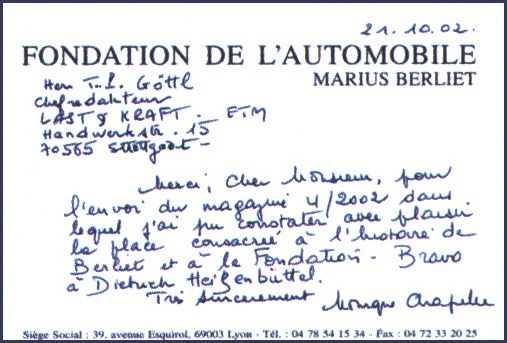 21.10.02.
FONDATION DE L'AUTOMOBILE
MARIUS BERLIET
Herr T. Göttl
Chefredakteur
LAST & KRAFT - ETM
Handwerkstr. 15
70565 Stuttgart -
Merci, Cher Monsieur, pour
l'envoi du magazine 4/2002 dans
lequel j'ai pu constater avec plaisir
la place consacrée à l'histoire de
Berliet et à la Fondation - Bravo
à Dietrich Heizenbüttel.
Très sincèrement Monique Chapelle
Siège Social : 39, avenue Esquirol, 69003 Lyon - Tél. : 04 78 54 15 34 - Fax : 04 72 33 20 25